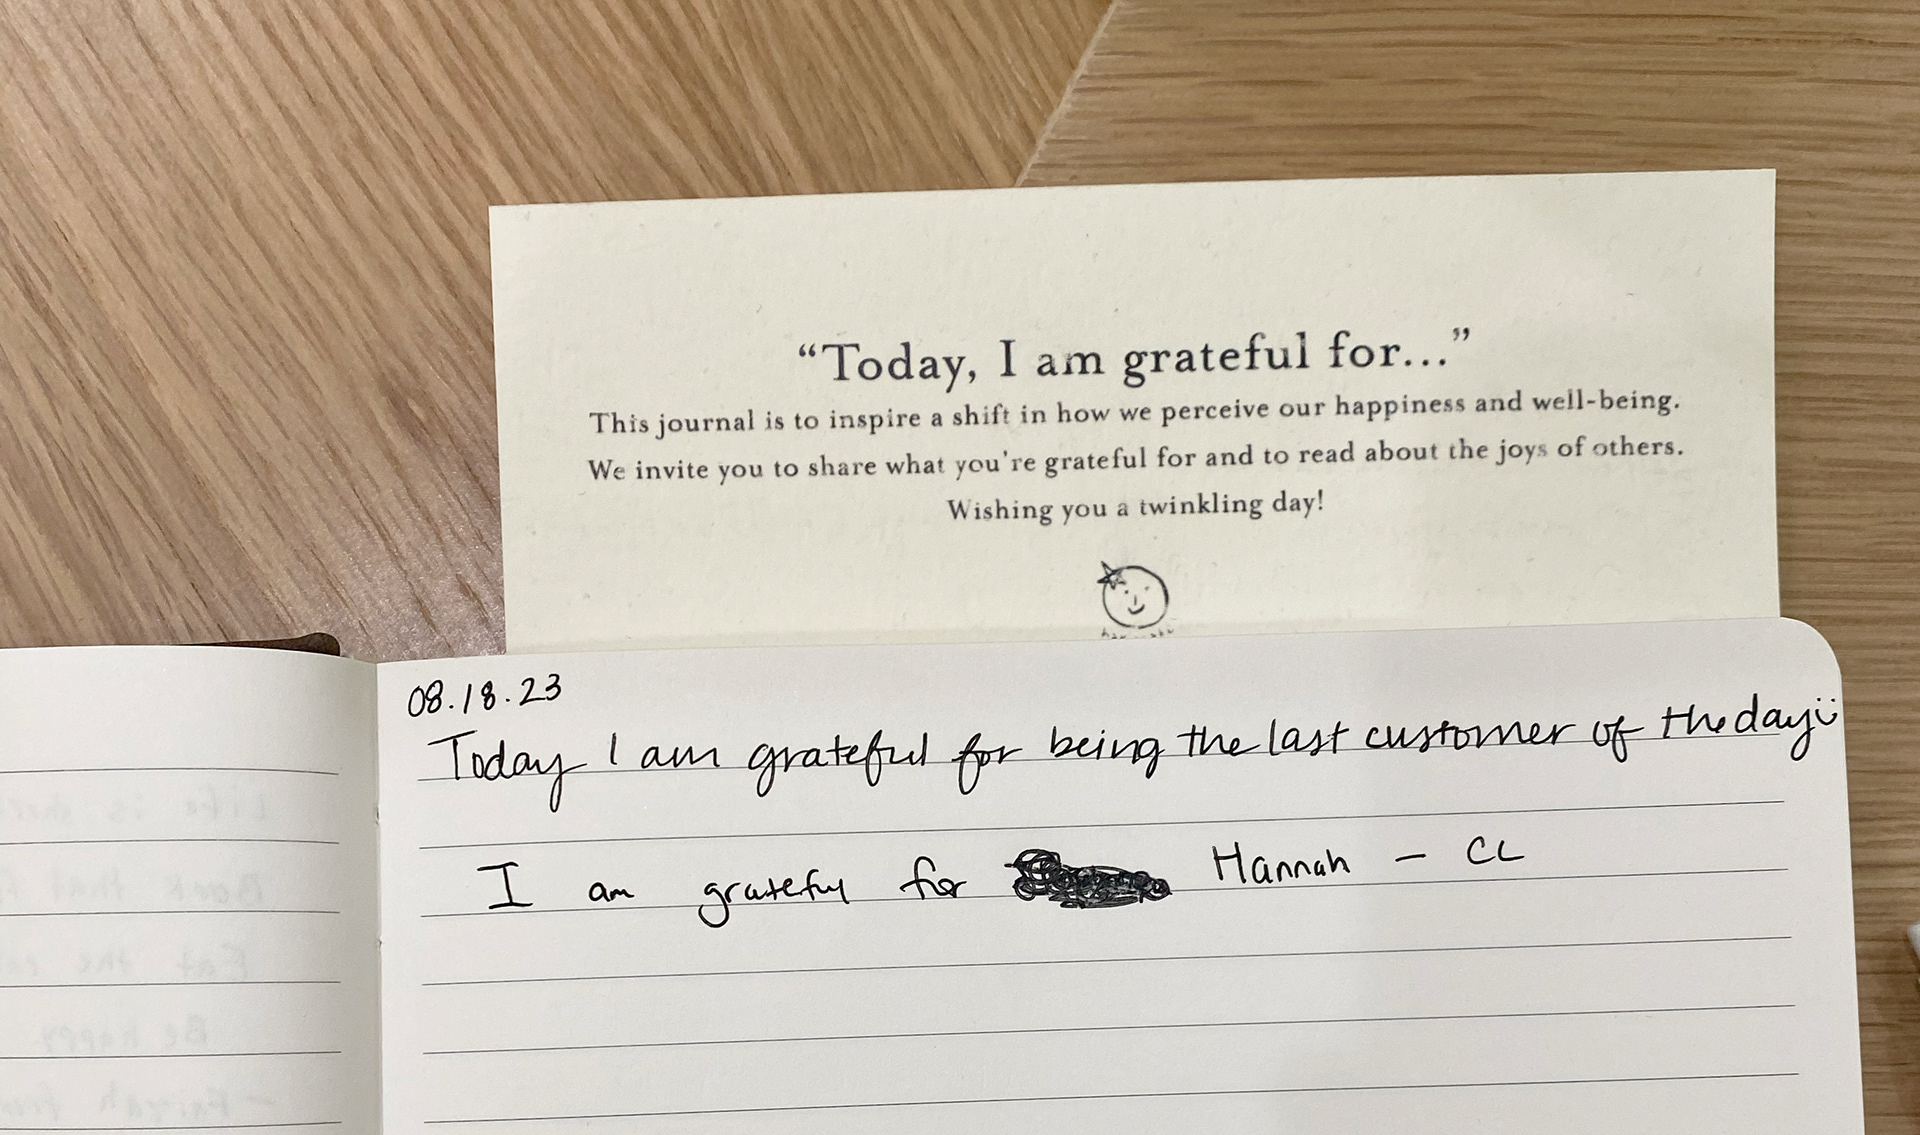 “Today, I am grateful for...”
This journal is to inspire a shift in how we perceive our happiness and well-being.
We invite you to share what you're grateful for and to read about the joys of others.
Wishing you a twinkling day!
08.18.23
Today I am grateful for being the last customer of the day :)
I am grateful for Hannah - CL
Life is
Book that
Eat the
Be happy